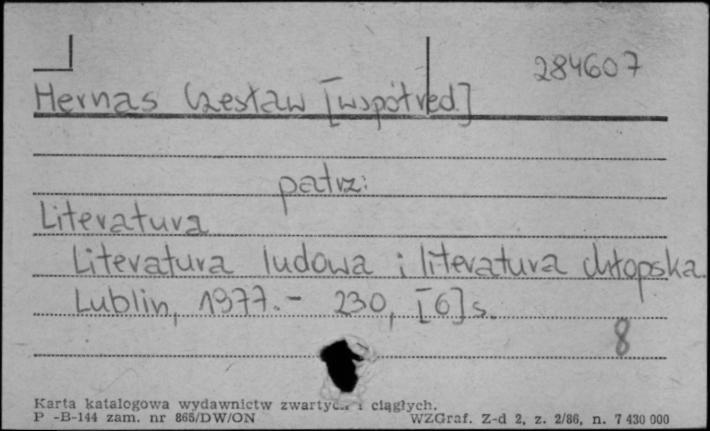 284607
Hernas Czesław [współred.]
patrz:
Literatura
Literatura ludowa i literatura chłopska.
Lublin, 1977.- 230, [6] s.
8
Karta katalogowa wydawnictw zwartych i ciągłych.
P -B-144 zam. nr 865/DW/ON WZGraf. Z-d 2, z. 2/86, n. 7 430 000